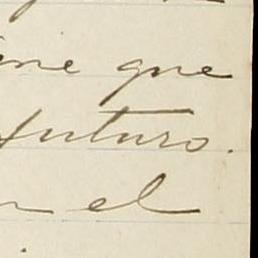 que
futuro.
el